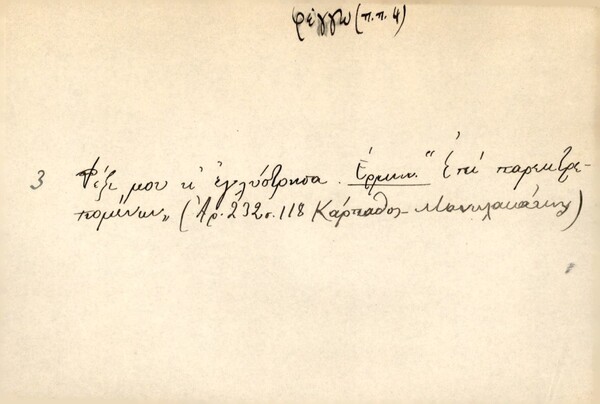 φέγγω (π.π. 4)
3 Φέξε μου κ' ἐγλύστρησα. Ἑρμην. "Ἐπὶ παρεκτρε-
πομένων„ (Ἀρ. 232 σ. 118 Κάρπαθος - Μανωλακάκης)